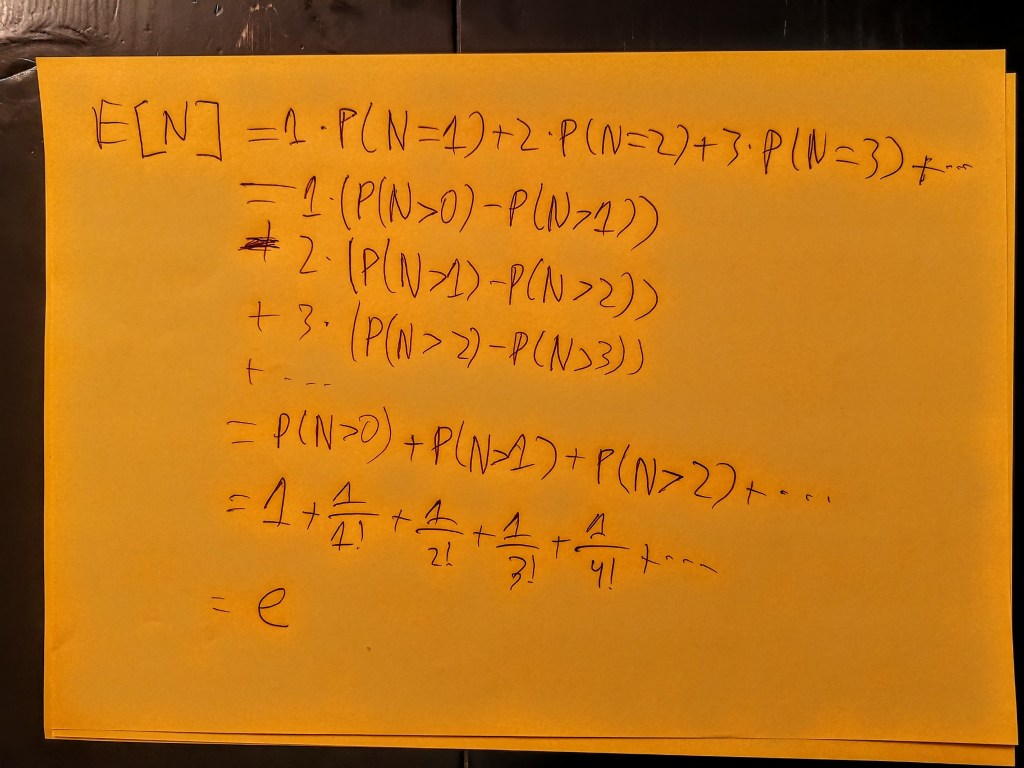 E[N] = 1 · P(N=1) + 2 · P(N=2) + 3 · P(N=3) + ...
= 1 · (P(N>0) - P(N>1))
+ 2 · (P(N>1) - P(N>2))
+ 3 · (P(N>2) - P(N>3))
+ ....
= P(N>0) + P(N>1) + P(N>2) + ....
= 1 + 1/1! + 1/2! + 1/3! + 1/4! + ....
= e